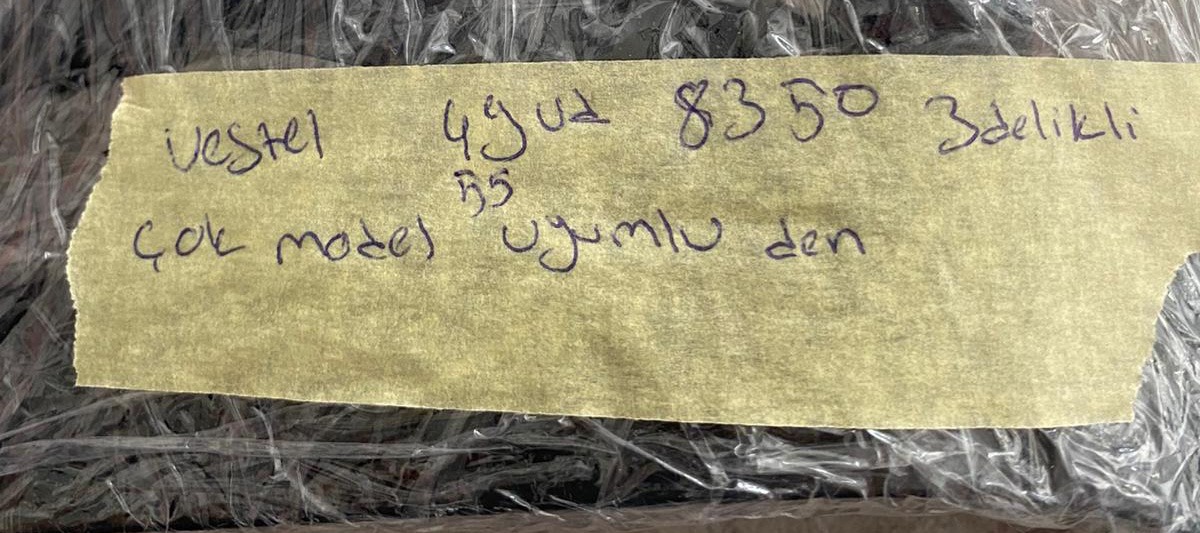 vestel 49ud 8350 3delikli
55
çok model uyumlu den